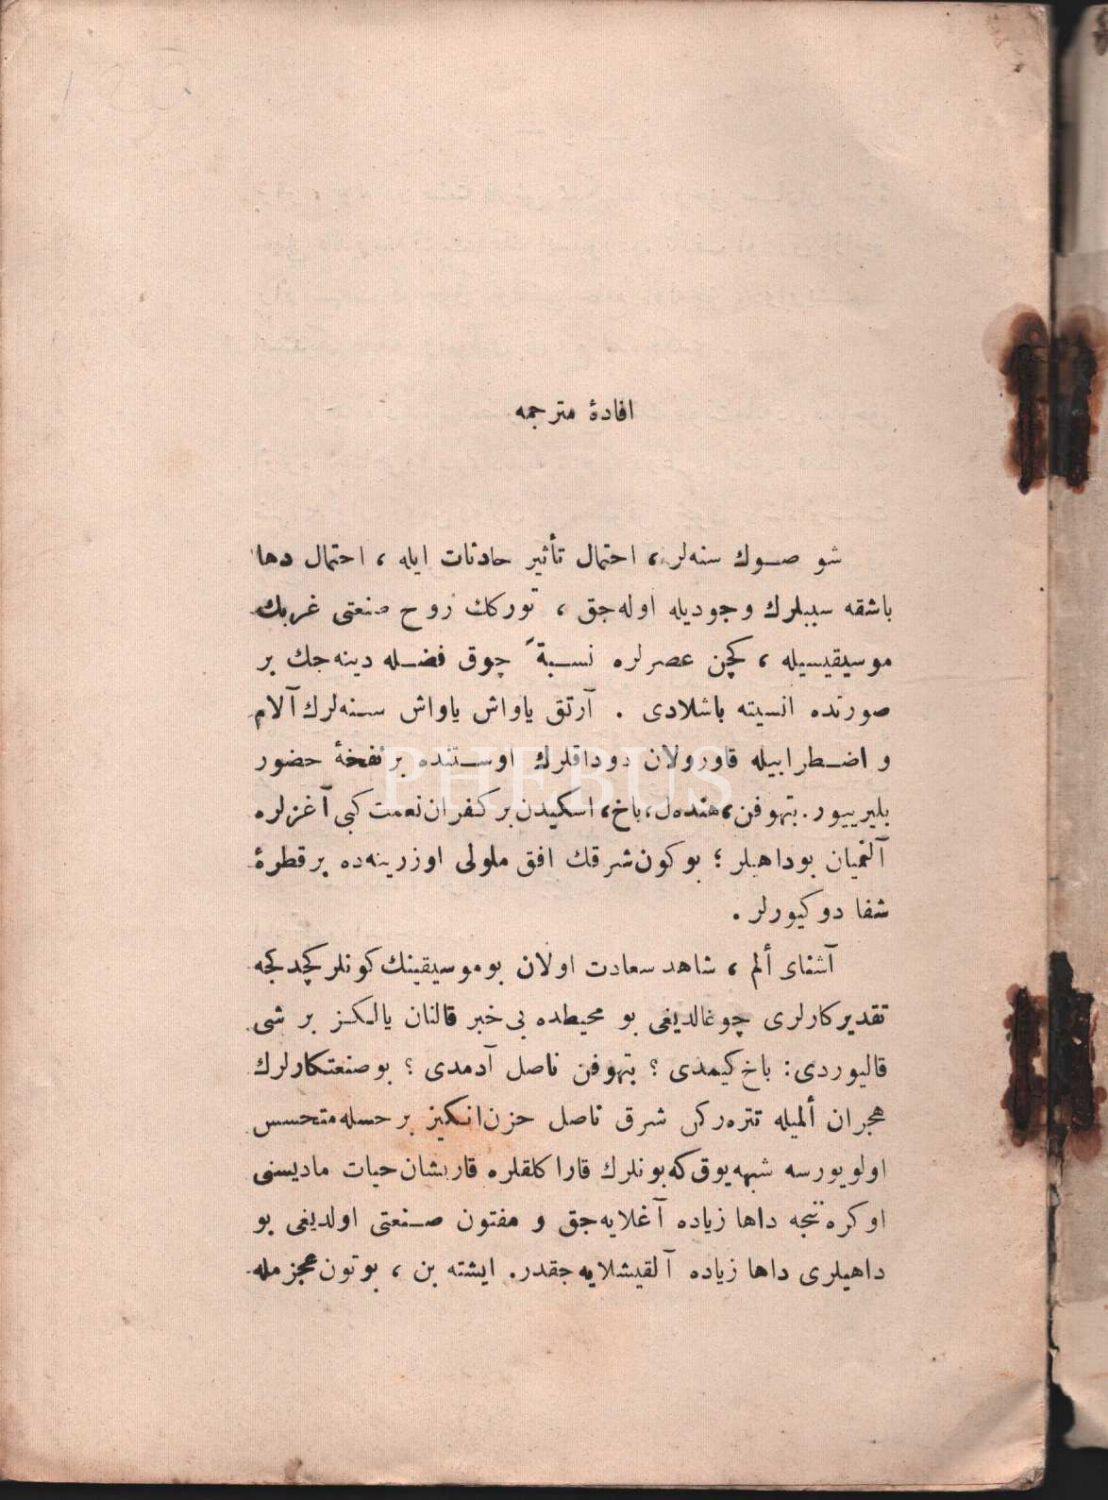 افادۀ مترجمه
شو صوك سنه‌لر، احتمال تأثیر حادثات ایله ، احتمال دها
باشقه سببلرك وجودیله اوله‌جق ، تورکك روح صنعتی غربك
موسیقیسیله ، کچن عصرلره نسبةً چوق فضله دینه‌جك بر
صورتده انسیته باشلادی . آرتق یاواش یاواش سنه‌لرك آلام
و اضطرابیله قاورولان دوداقلرك اوستنده بر نفخۀ حضور
بلیرییور. بتهوفن، هنده‌ل، باخ، اسکیدن بر کفران نعمت کبی آغزلره
آلنمیان بوداهیلر ؛ بوکون شرقك افق ملولی اوزرینه‌ده بر قطرۀ
شفا دوکیورلر .
آشنای ألم ، شاهد سعادت اولان بوموسیقینك کونلر کچدکجه
تقدیرکارلری چوغالدیغی بو محیطده بی خبر قالنان یالکز بر شی
قالیوردی: باخ کیمدی ؟ بتهوفن ناصل آدمدی ؟ بوصنعتکارلرك
هجران ألمیله تتره‌رکن شرق ناصل حزن‌انکیز بر حسله متحسس
اولویورسه شبهه‌یوق‌که بونلرك قاراکلقلره قاریشان حیات مادیسنی
اوکره‌نجه داها زیاده آغلایه‌جق و مفتون صنعتی اولدیغی بو
داهیلری داها زیاده آلقیشلایه‌جقدر. ایشته بن ، بوتون عجزمله
PHEBUS